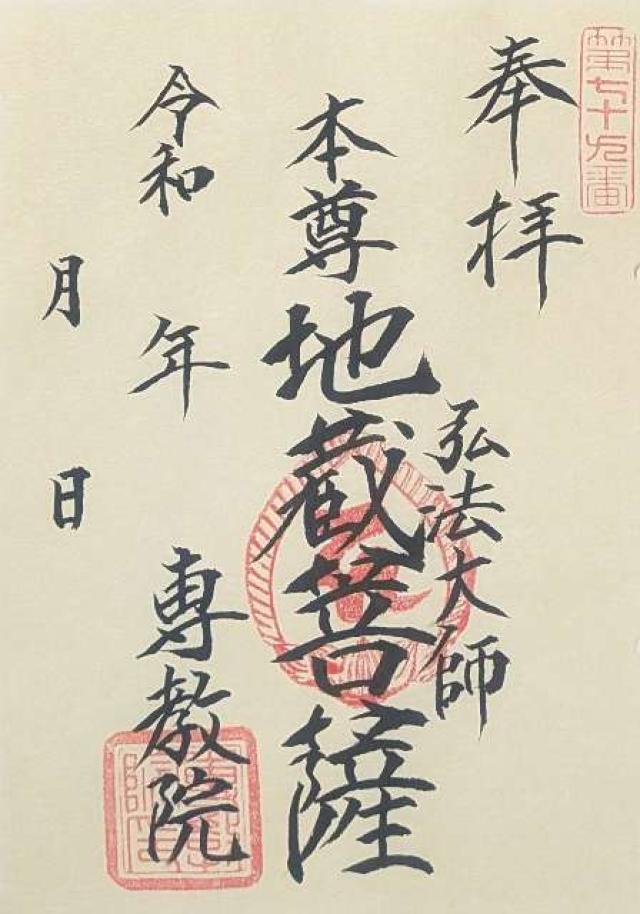 第七十九番
奉拝
弘法大師
本尊地蔵菩薩
令和 年
月 日
專教院